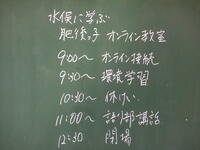 水俣に学ぶ
肥後っ子 オンライン教室
9:00～ オンライン接続
9:30～ 環境学習
10:30～ 休けい
11:00～ 語り部講話
12:30 閉場